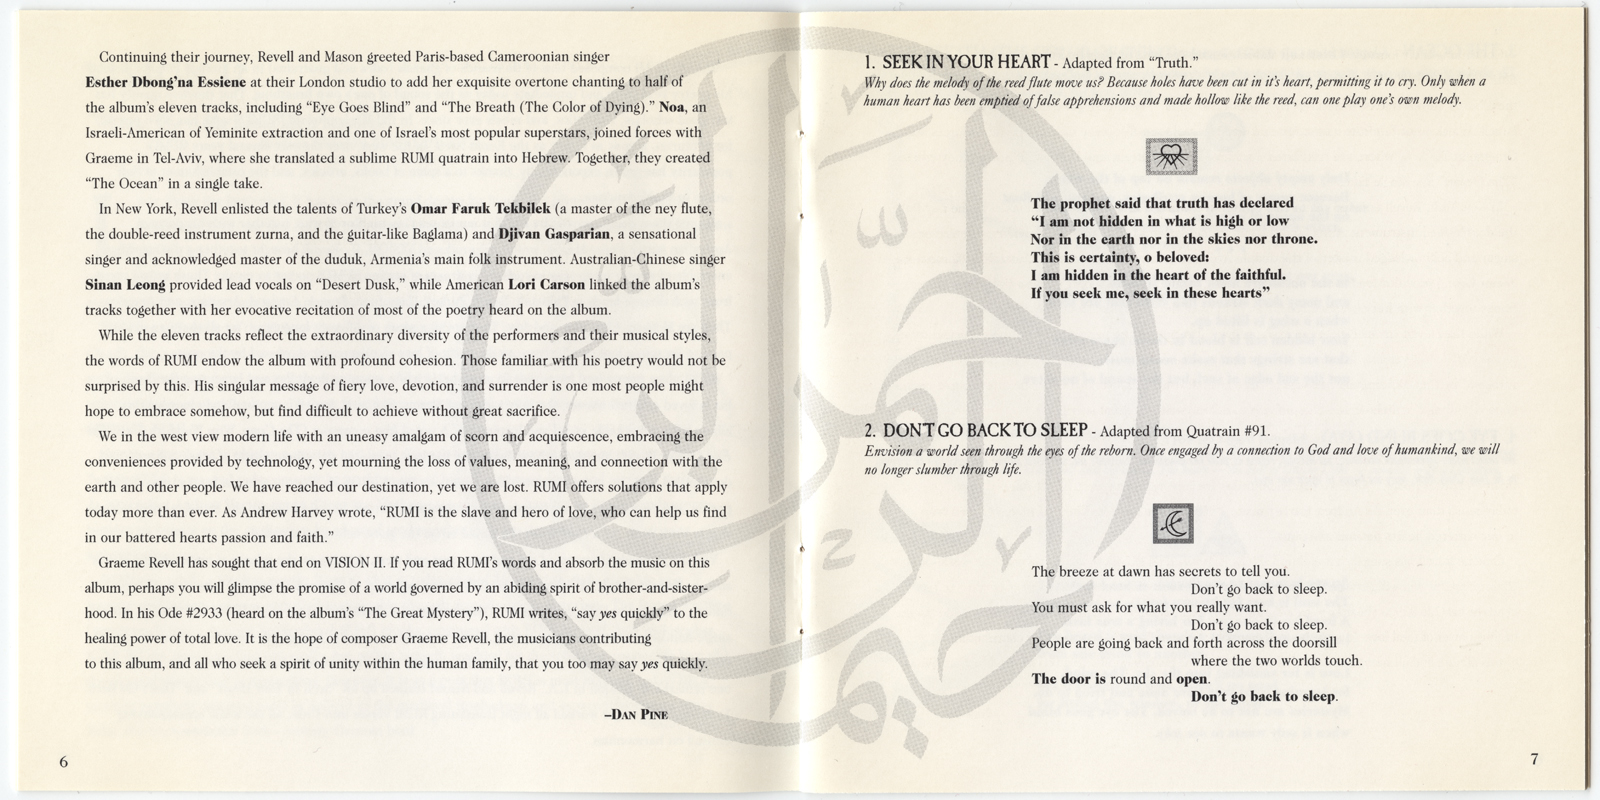 Continuing their journey, Revell and Mason greeted Paris-based Cameroonian singer
Esther Dbong'na Essiene at their London studio to add her exquisite overtone chanting to half of
the album's eleven tracks, including “Eye Goes Blind” and “The Breath (The Color of Dying).” Noa, an
Israeli-American of Yeminite extraction and one of Israel's most popular superstars, joined forces with
Graeme in Tel-Aviv, where she translated a sublime RUMI quatrain into Hebrew. Together, they created
“The Ocean” in a single take.
In New York, Revell enlisted the talents of Turkey's Omar Faruk Tekbilek (a master of the ney flute,
the double-reed instrument zurna, and the guitar-like Baglama) and Djivan Gasparian, a sensational
singer and acknowledged master of the duduk, Armenia's main folk instrument. Australian-Chinese singer
Sinan Leong provided lead vocals on “Desert Dusk,” while American Lori Carson linked the album's
tracks together with her evocative recitation of most of the poetry heard on the album.
While the eleven tracks reflect the extraordinary diversity of the performers and their musical styles,
the words of RUMI endow the album with profound cohesion. Those familiar with his poetry would not be
surprised by this. His singular message of fiery love, devotion, and surrender is one most people might
hope to embrace somehow, but find difficult to achieve without great sacrifice.
We in the west view modern life with an uneasy amalgam of scorn and acquiescence, embracing the
conveniences provided by technology, yet mourning the loss of values, meaning, and connection with the
earth and other people. We have reached our destination, yet we are lost. RUMI offers solutions that apply
today more than ever. As Andrew Harvey wrote, “RUMI is the slave and hero of love, who can help us find
in our battered hearts passion and faith.”
Graeme Revell has sought that end on VISION II. If you read RUMI's words and absorb the music on this
album, perhaps you will glimpse the promise of a world governed by an abiding spirit of brother-and-sister-
hood. In his Ode #2933 (heard on the album's “The Great Mystery”), RUMI writes, “say yes quickly” to the
healing power of total love. It is the hope of composer Graeme Revell, the musicians contributing
to this album, and all who seek a spirit of unity within the human family, that you too may say yes quickly.
–DAN PINE
6
1. SEEK IN YOUR HEART - Adapted from “Truth.”
Why does the melody of the reed flute move us? Because holes have been cut in it's heart, permitting it to cry. Only when a
human heart has been emptied of false apprehensions and made hollow like the reed, can one play one's own melody.
The prophet said that truth has declared
“I am not hidden in what is high or low
Nor in the earth nor in the skies nor throne.
This is certainty, o beloved:
I am hidden in the heart of the faithful.
If you seek me, seek in these hearts”
2. DON'T GO BACK TO SLEEP - Adapted from Quatrain #91.
Envision a world seen through the eyes of the reborn. Once engaged by a connection to God and love of humankind, we will
no longer slumber through life.
The breeze at dawn has secrets to tell you.
Don't go back to sleep.
You must ask for what you really want.
Don't go back to sleep.
People are going back and forth across the doorsill
where the two worlds touch.
The door is round and open.
Don't go back to sleep.
7